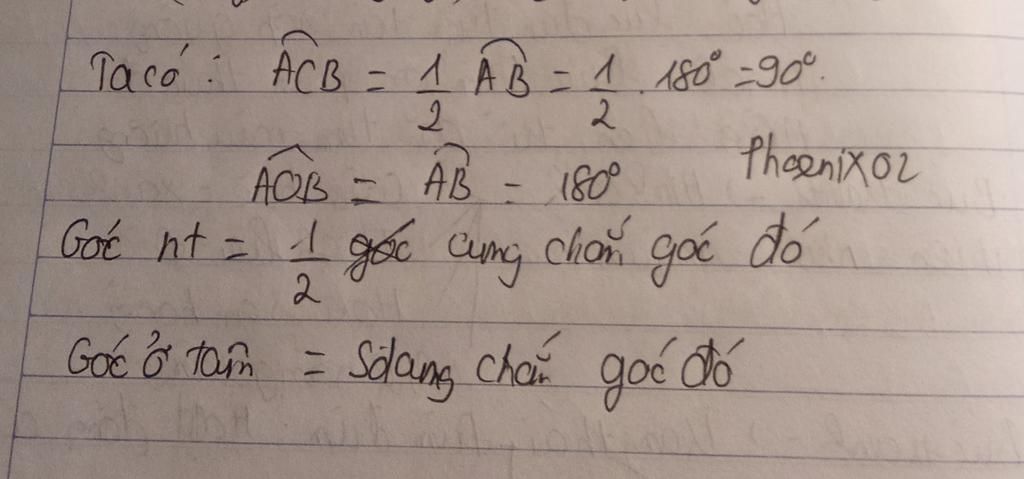 Ta có : ACB = 1/2 AB = 1/2 . 180° = 90°.
AOB = AB = 180°
Phoenix02
Góc nt = 1/2 góc cung chắn góc đó
Góc ở tâm = Sđ cung chắn góc đó